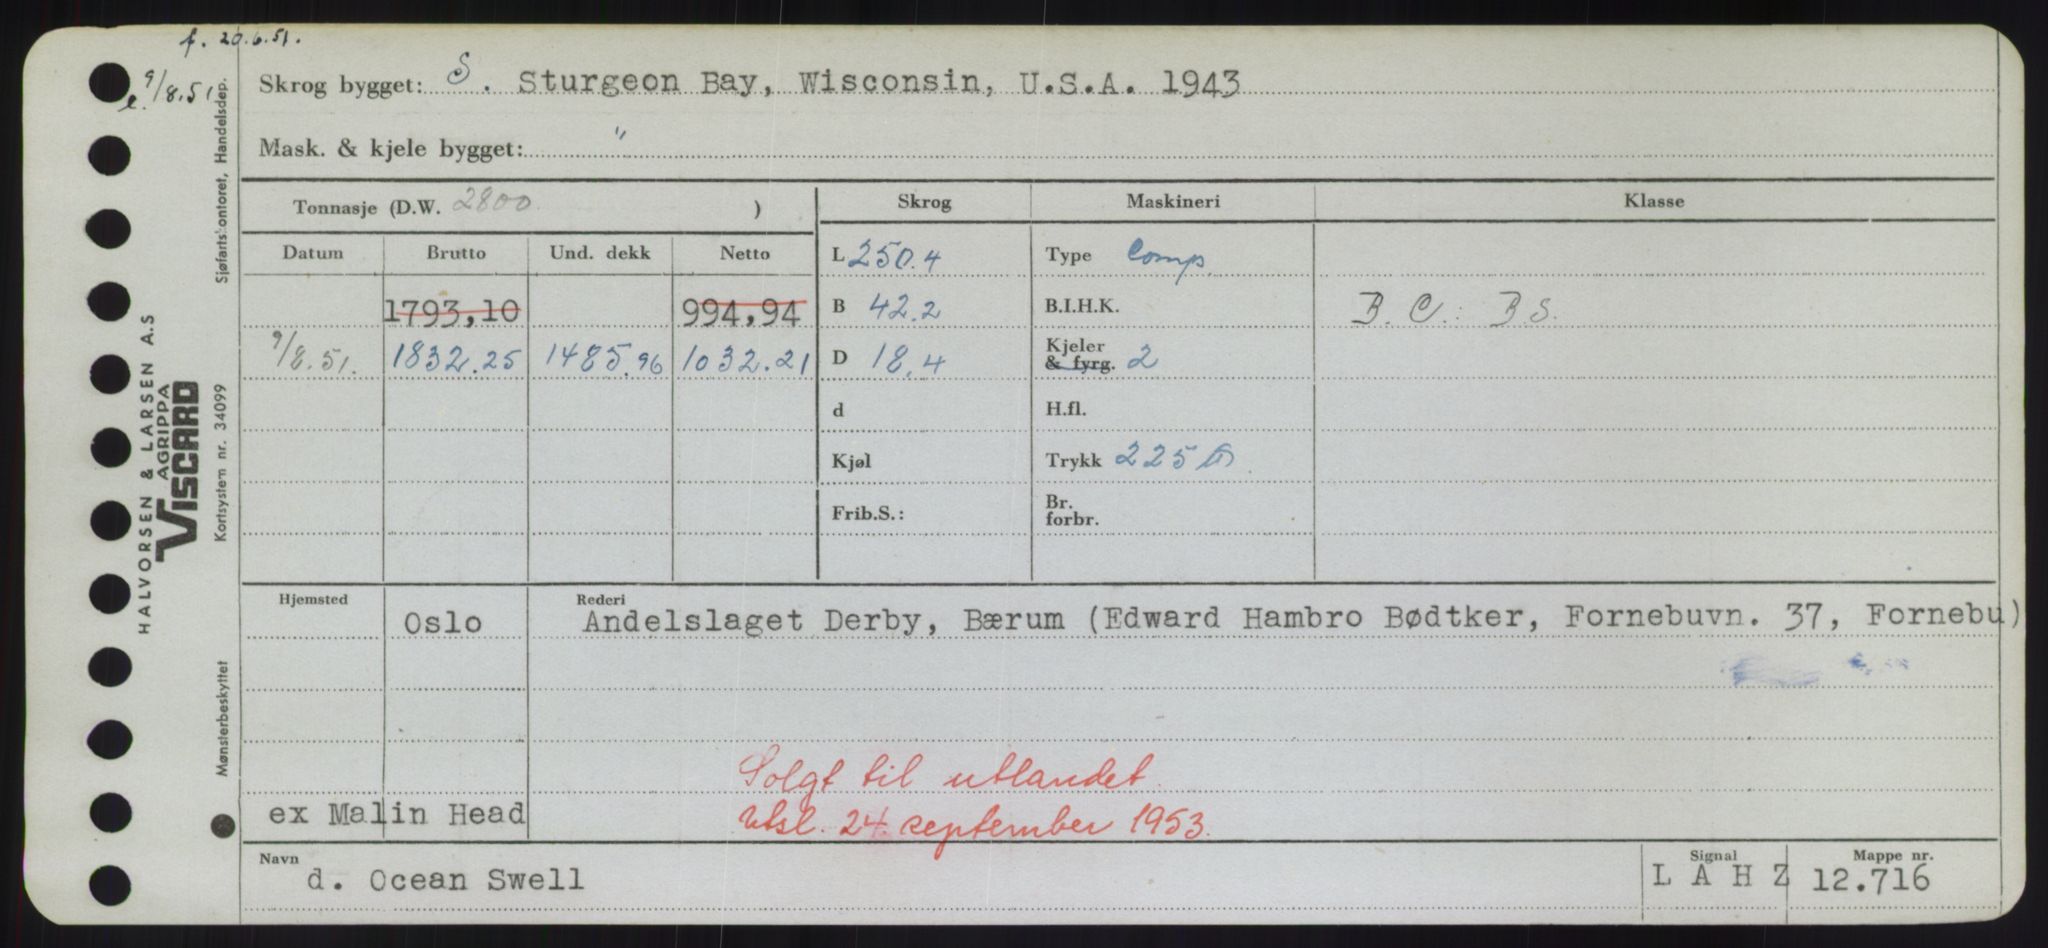 f. 20.6.51.
e. 9/8.51
Skrog bygget: S. Sturgeon Bay, Wisconsin, U.S.A. 1943
Mask. & kjele bygget: "
Tonnasje (D.W. 2800 )
Skrog Maskineri Klasse
Datum Brutto Und. dekk Netto
L 250.4 Type Comp.
1793,10 994,94 B 42.2 B.I.H.K. B.C.: B.S.
9/8.51. 1832.25 1485.96 1032.21 D 18.4 Kjeler & fyrg. 2
d H.fl.
Kjøl Trykk 225
Frib.S.: Br. forbr.
Hjemsted Rederi
Oslo Andelslaget Derby, Bærum (Edward Hambro Bødtker, Fornebuvn. 37, Fornebu)
Solgt til utlandet.
ex Malin Head utsl. 24. september 1953.
Navn Signal Mappe nr.
d. Ocean Swell L A H Z 12.716
HALVORSEN & LARSEN A.S
AGRIPPA
VISCARD
Mønsterbeskyttet Kortsystem nr. 34099 Sjøfartskontoret, Handelsdep.